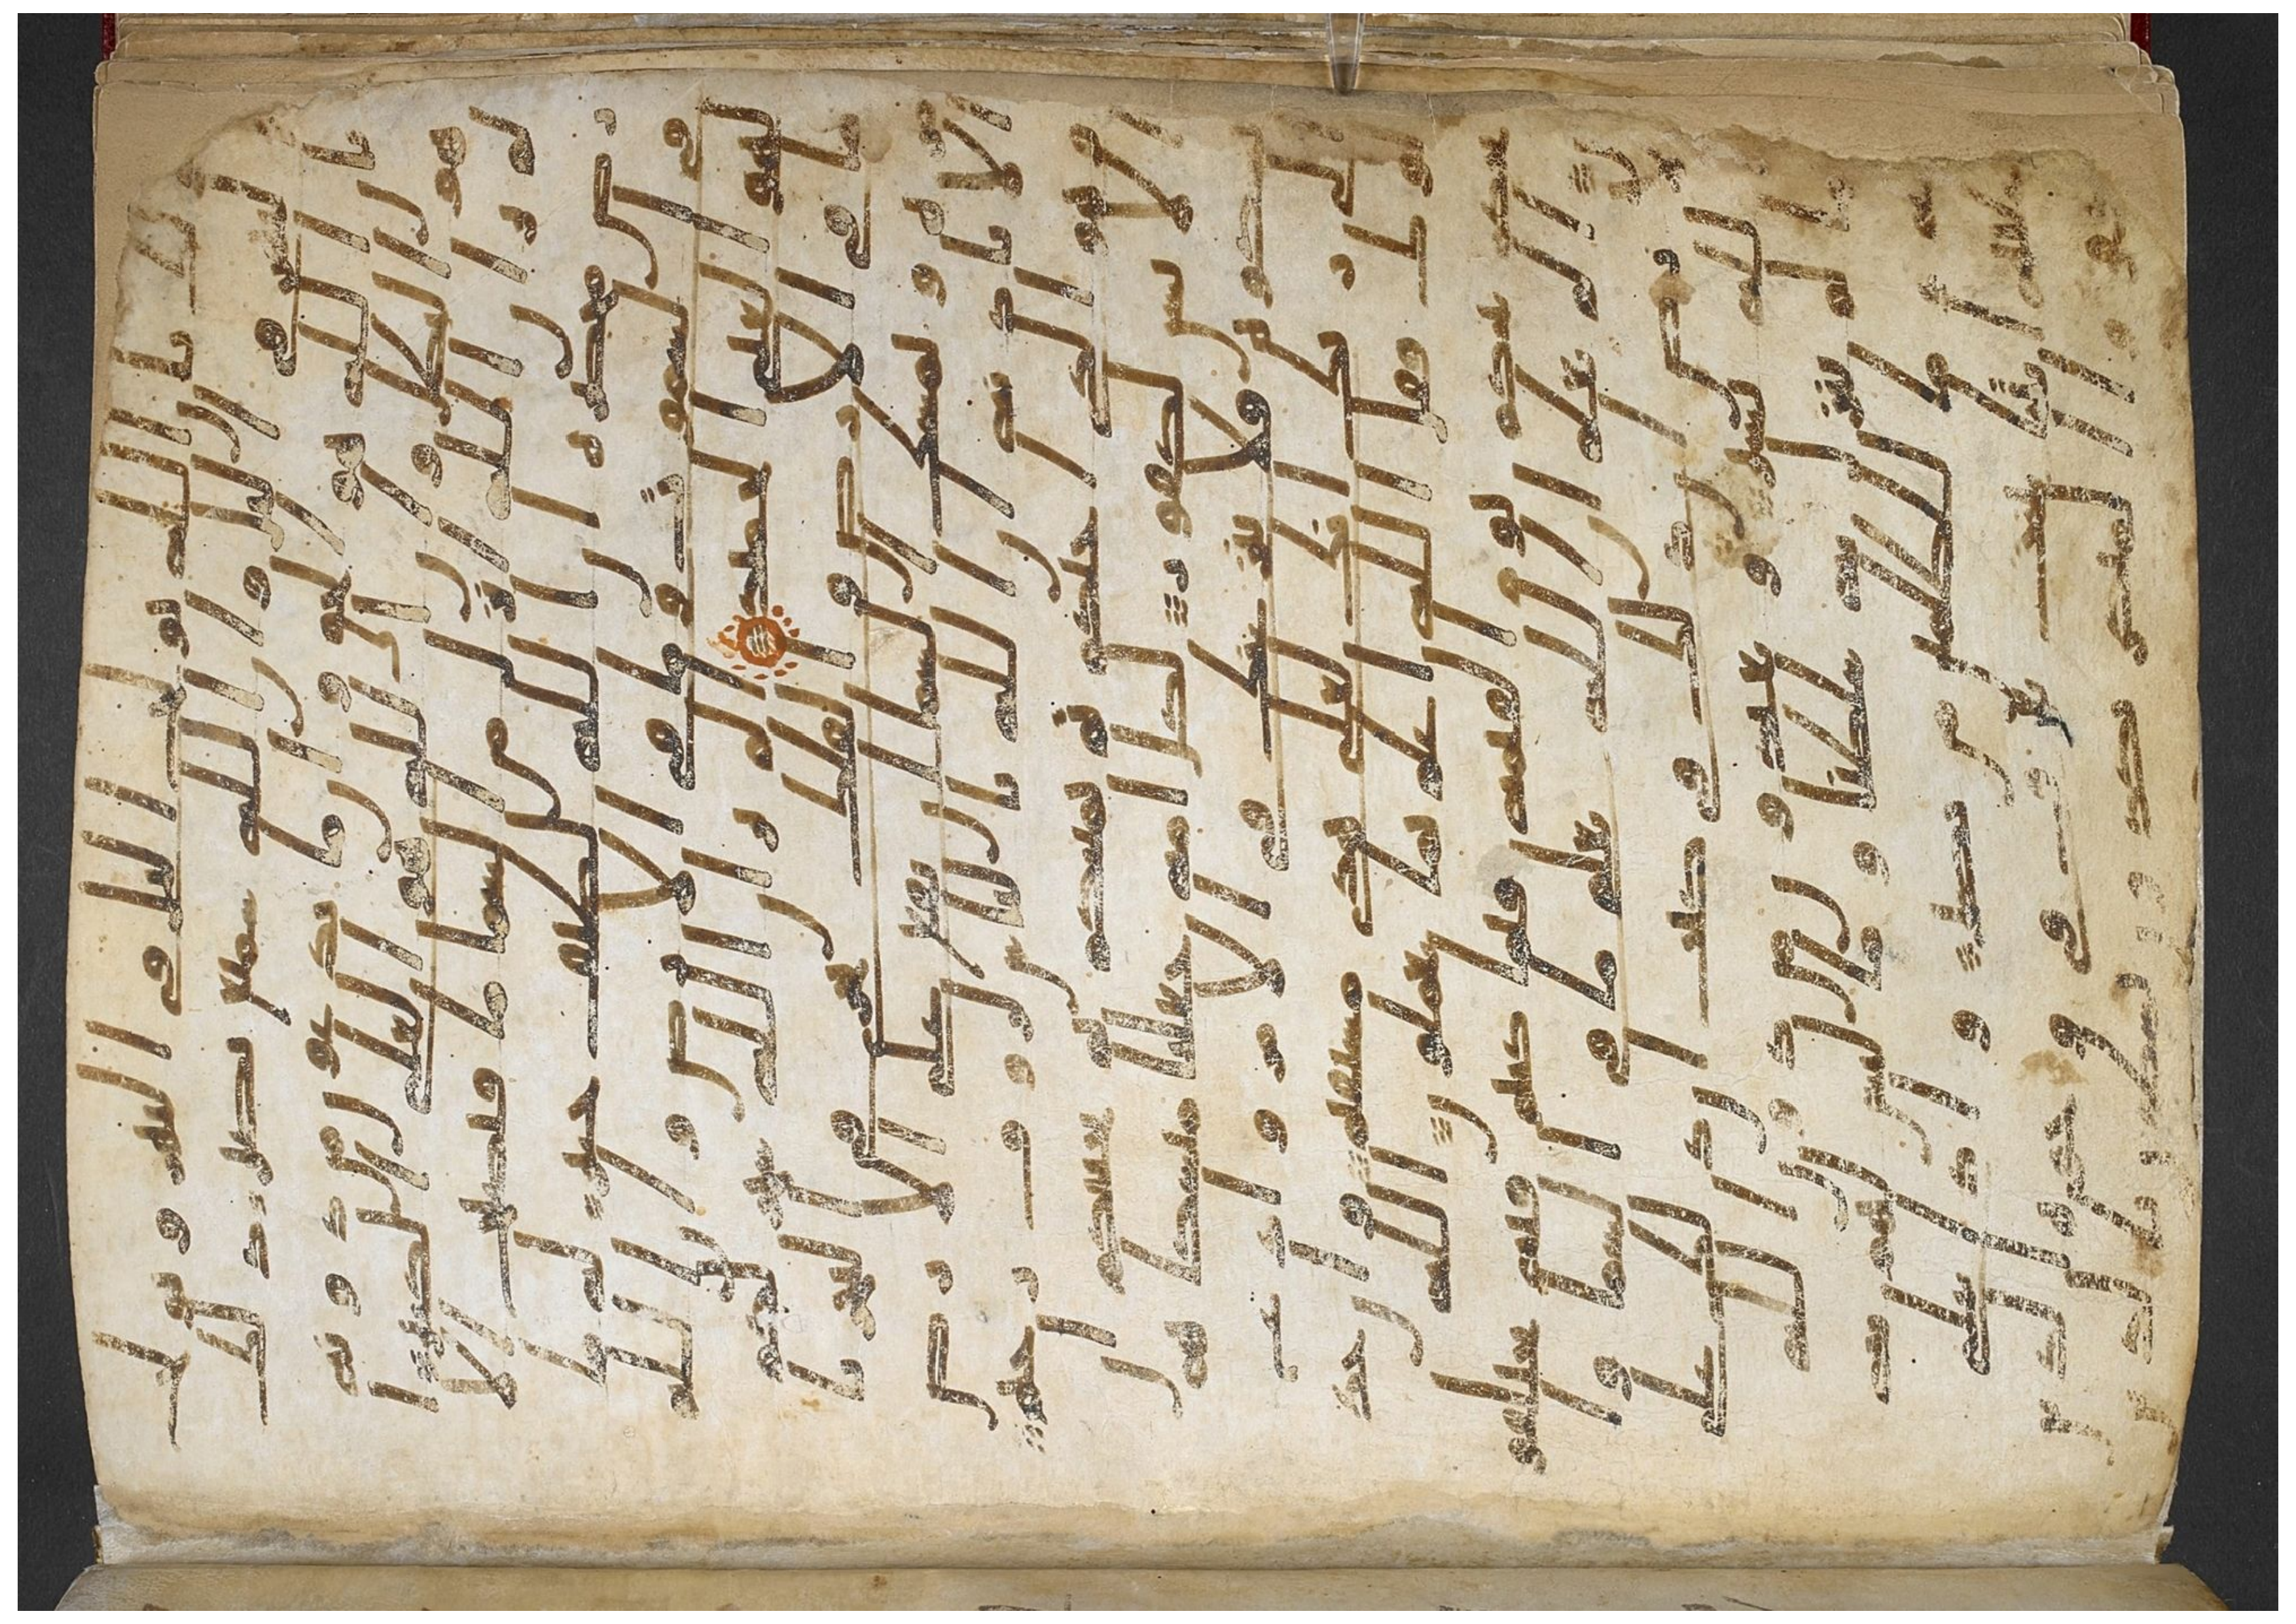 ذلك بان الله يولج الليل في النهار و يولج
النهار في الليل و ان الله سميع بصير ذلك
بان الله هو الحق و ان ما يدعون من دونه
هو البطل و ان الله هو العلي الكبير ا
لم تر ان الله انزل من السما ما فتصبح الا
رض مخضره ان الله لطيف خبير له ما
في السموت و ما في الارض و ان الله
لهو الغني الحميد الم تر ان الله سخر لكم
ما في الارض و الفلك تجري في البحر با
مره و يمسك السما ان تقع على الارض
الا باذنه ان الله بالناس لروف رحيم
و هو الذي احيكم ثم يميتكم ثم يحييكم ا
ن الانسن لكفور لكل امه جعلنا منسكا هم
نسكوه فلا ينزعنك في الامر و ادع
الى ربك انك لعلى هدى مستقيم و ان جد
لوك فقل الله اعلم بما تعملون الله
يحكم بينكم يوم القيمه فيما كنتم فيه تختلفو
ن الم تعلم ان الله يعلم ما في السما و ا
لارض ان ذلك في كتب ان ذلك على
الله يسير و يعبدون من دون الله
ما لم ينزل به سلطنا و ما ليس لهم به
علم و ما للظلمين من نصير و اذا تتلى
عليهم ايتنا بينت تعرف في وجوه الذين
كفروا المنكر يكادون يسطون